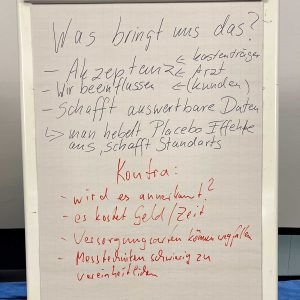 Was bringt uns das?
- Akzeptanz ← Kostenträger
← Arzt
- Wir beeinflussen ← (Kunden)
- Schafft auswertbare Daten
↳ man hebelt Placebo Effekte
aus, schafft Standarts
Kontra:
- wird es anerkannt?
- es kostet Geld/Zeit
- Versorgungsarten können wegfallen
- Messtechniken schwierig zu
vereinheitlichen